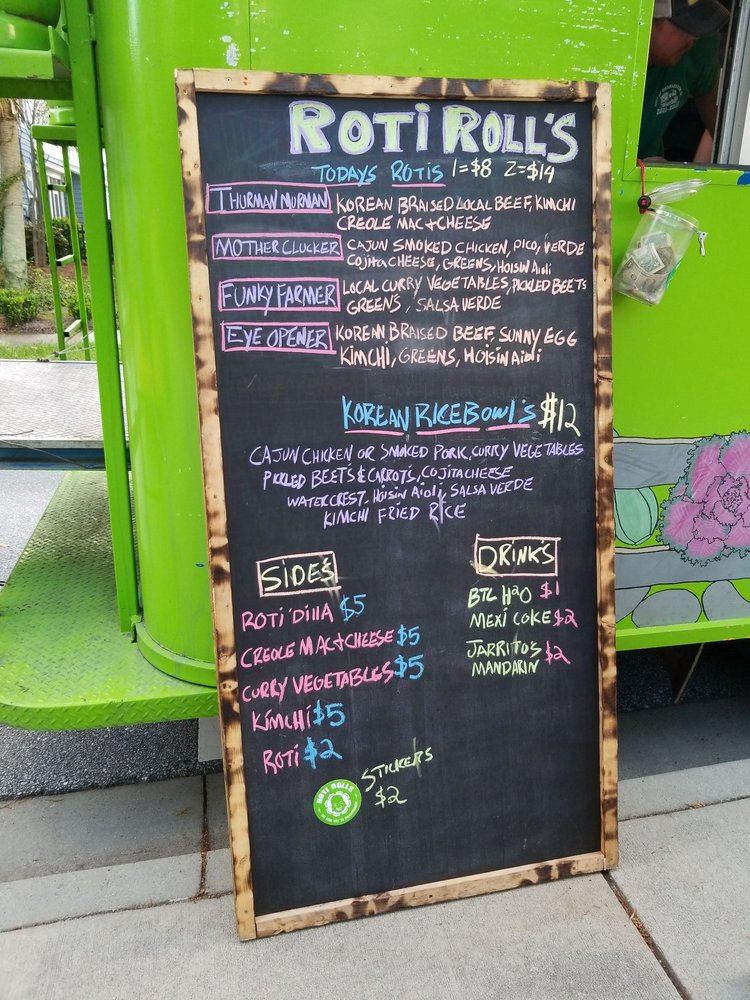 ROTI ROLL'S
TODAYS ROTIS 1=$8 2=$14
THURMAN MURMAN KOREAN BRAISED LOCAL BEEF, KIMCHI
CREOLE MAC+CHEESE
MOTHER CLUCKER CAJUN SMOKED CHICKEN, PICO, VERDE
COJITA CHEESE, GREENS, HOISIN AIOLI
FUNKY FARMER LOCAL CURRY VEGETABLES, PICKLED BEETS
GREEN'S, SALSA VERDE
EYE OPENER KOREAN BRAISED BEEF, SUNNY EGG
KIMCHI, GREENS, HOISIN AIOLI
KOREAN RICE BOWL'S $12
CAJUN CHICKEN OR SMOKED PORK, CURRY VEGETABLES
PICKLED BEETS & CARROTS, COJITA CHEESE
WATERCREST, HOISIN AIOLI, SALSA VERDE
KIMCHI FRIED RICE
SIDE'S
ROTI'DILLA $5
CREOLE MAC+CHEESE $5
CURRY VEGETABLES $5
KIMCHI $5
ROTI $2
DRINK'S
BTL H2O $1
MEXI COKE $2
JARRITO'S $2
MANDARIN
STICKERS
$2
ROTI ROLLS